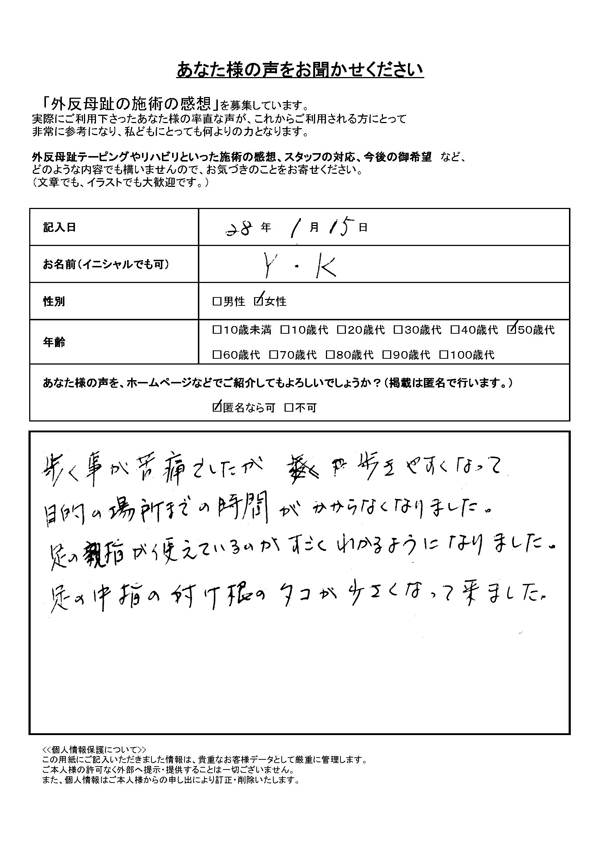 あなた様の声をお聞かせください
「外反母趾の施術の感想」を募集しています。
実際にご利用下さったあなた様の率直な声が、これからご利用される方にとって
非常に参考になり、私どもにとっても何よりの力となります。
外反母趾テーピングやリハビリといった施術の感想、スタッフの対応、今後の御希望 など、
どのような内容でも構いませんので、お気づきのことをお寄せください。
(文章でも、イラストでも大歓迎です。)
記入日 28 年 1 月 15 日
お名前(イニシャルでも可) Y・K
性別 □男性 ☑女性
年齢 □10歳未満 □10歳代 □20歳代 □30歳代 □40歳代 ☑50歳代
□60歳代 □70歳代 □80歳代 □90歳代 □100歳代
あなた様の声を、ホームページなどでご紹介してもよろしいでしょうか?(掲載は匿名で行います。)
☑匿名なら可 □不可
歩く事が苦痛でしたが 歩きやすくなって
目的の場所までの時間がかからなくなりました。
足の親指が使えているのがすごくわかるようになりました。
足の中指の付け根のタコが小さくなって来ました。
<<個人情報保護について>>
この用紙にご記入いただきました情報は、貴重なお客様データとして厳重に管理します。
ご本人様の許可なく外部へ提示・提供することは一切ございません。
また、個人情報はご本人様からの申し出により訂正・削除いたします。